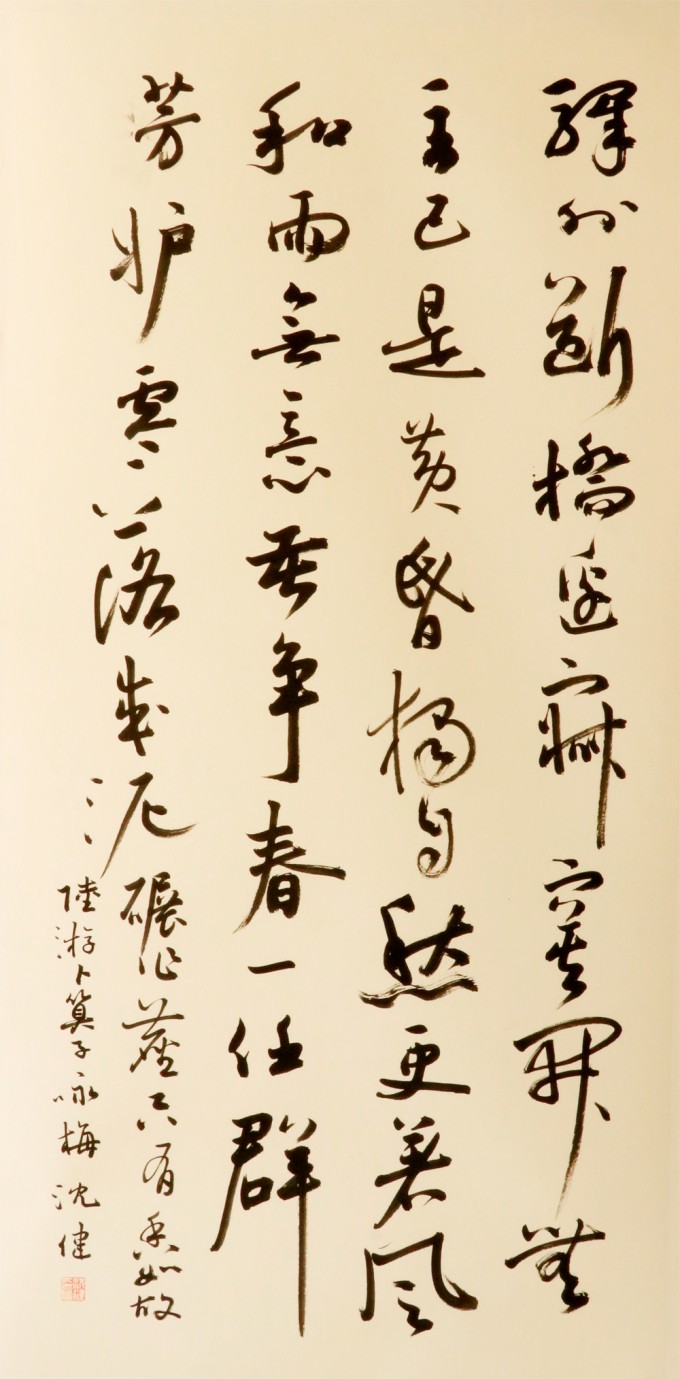 驛外斷橋邊寂寞開無
主已是黄昏獨自愁更著風
和雨無意苦争春一任群
芳妒零落成泥碾作塵只有香如故
陸游卜算子咏梅沈健